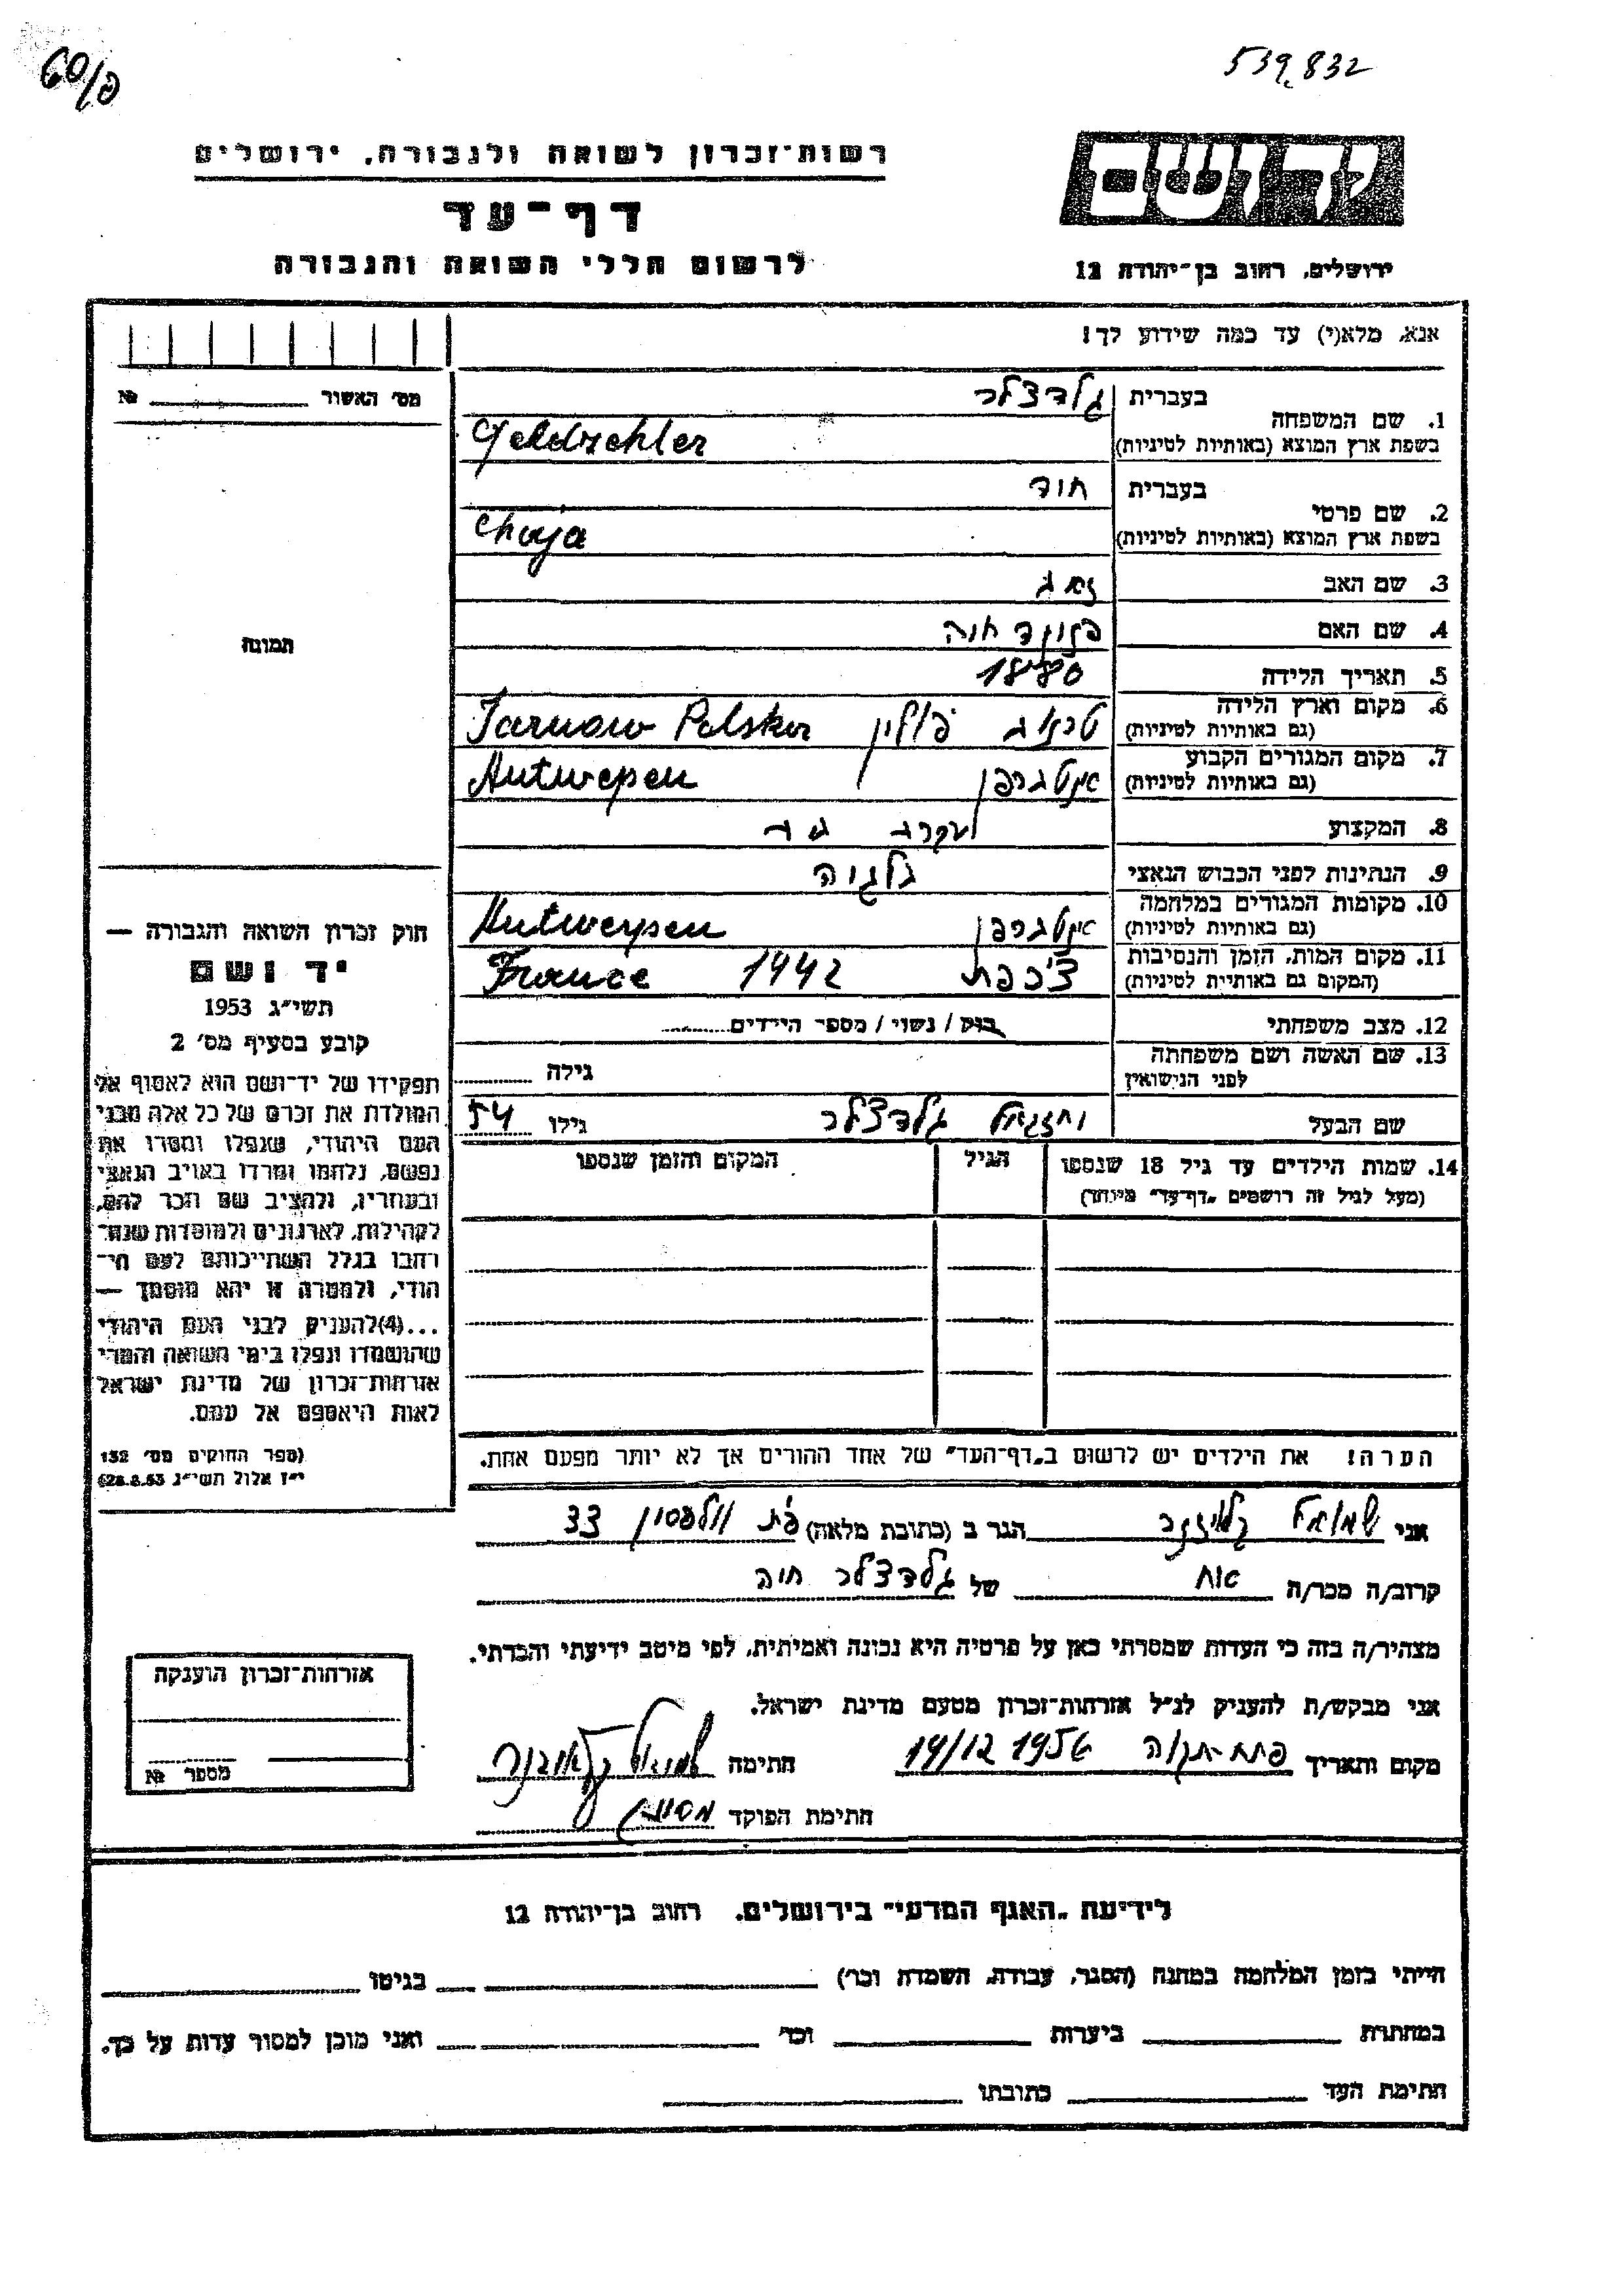 60/פ
539,832
יד ושם
רשות־זכרון לשואה ולגבורה, ירושלים
דף־עד
לרשום חללי השואה והגבורה
ירושלים, רחוב בן־יהודה 12
אנא, מלא(י) עד כמה שידוע לך!
מס' האשור № 
1. שם המשפחה בעברית גלדצלר
בשפת ארץ המוצא (באותיות לטיניות) Geldzehler
2. שם פרטי בעברית חוה
בשפת ארץ המוצא (באותיות לטיניות) Chaja
3. שם האב
4. שם האם חוה
5. תאריך הלידה 1880
6. מקום וארץ הלידה
(גם באותיות לטיניות) טרנוב פולין Tarnow Polska
7. מקום המגורים הקבוע
(גם באותיות לטיניות) אנטורפן Antwepen
8. המקצוע
9. הנתינות לפני הכבוש הנאצי בלגיה
10. מקומות המגורים במלחמה
(גם באותיות לטיניות) אנטורפן Antwerpen
11. מקום המות, הזמן והנסיבות
(המקום גם באותיות לטיניות) צרפת 1942 France
12. מצב משפחתי רווק / נשוי / מספר הילדים
13. שם האשה ושם משפחתה
לפני הנישואין גילה
שם הבעל יחזקאל גלדצלר גילו 54
14. שמות הילדים עד גיל 18 שנספו
(מעל לגיל זה רושמים "דף־עד" מיוחד)
הגיל
המקום והזמן שנספו
הערה! את הילדים יש לרשום ב"דף־העד" של אחד ההורים אך לא יותר מפעם אחת.
תמונה
חוק זכרון השואה והגבורה —
יד ושם
תשי"ג 1953
קובע בסעיף מס' 2
תפקידו של יד־ושם הוא לאסוף אל
המולדת את זכרם של כל אלה מבני
העם היהודי, שנפלו ומסרו את
נפשם, נלחמו ומרדו באויב הנאצי
ובעוזריו, ולהציב שם וזכר להם,
לקהילות, לארגונים ולמוסדות שנח־
רבו בגלל השתייכותם לעם הי־
הודי, ולמטרה זו יהא מוסמך —
...(4) להעניק לבני העם היהודי
שהושמדו ונפלו בימי השואה והמרי
אזרחות־זכרון של מדינת ישראל
לאות היאספם אל עמם.
(ספר החוקים מס' 132
י"ז אלול תשי"ג 28.8.53)
אני שמואל הגר ב (כתובת מלאה) פ"ת וולפסון 33
קרוב/ה מכר/ה אח של גלדצלר חיה
מצהיר/ה בזה כי העדות שמסרתי כאן על פרטיה היא נכונה ואמיתית, לפי מיטב ידיעתי והכרתי.
אני מבקש/ת להעניק לנ"ל אזרחות־זכרון מטעם מדינת ישראל.
מקום ותאריך פתח־תקוה 14/12 1956 חתימה שמואל
חתימת הפוקד
אזרחות־זכרון הוענקה
מספר №
לידיעת "האגף המדעי" בירושלים, רחוב בן־יהודה 12
הייתי בזמן המלחמה במחנה (הסגר, עבודה, השמדה וכו') בגיטו
במחתרת ביערות וכו' ואני מוכן למסור עדות על כך.
חתימת העד כתובתו